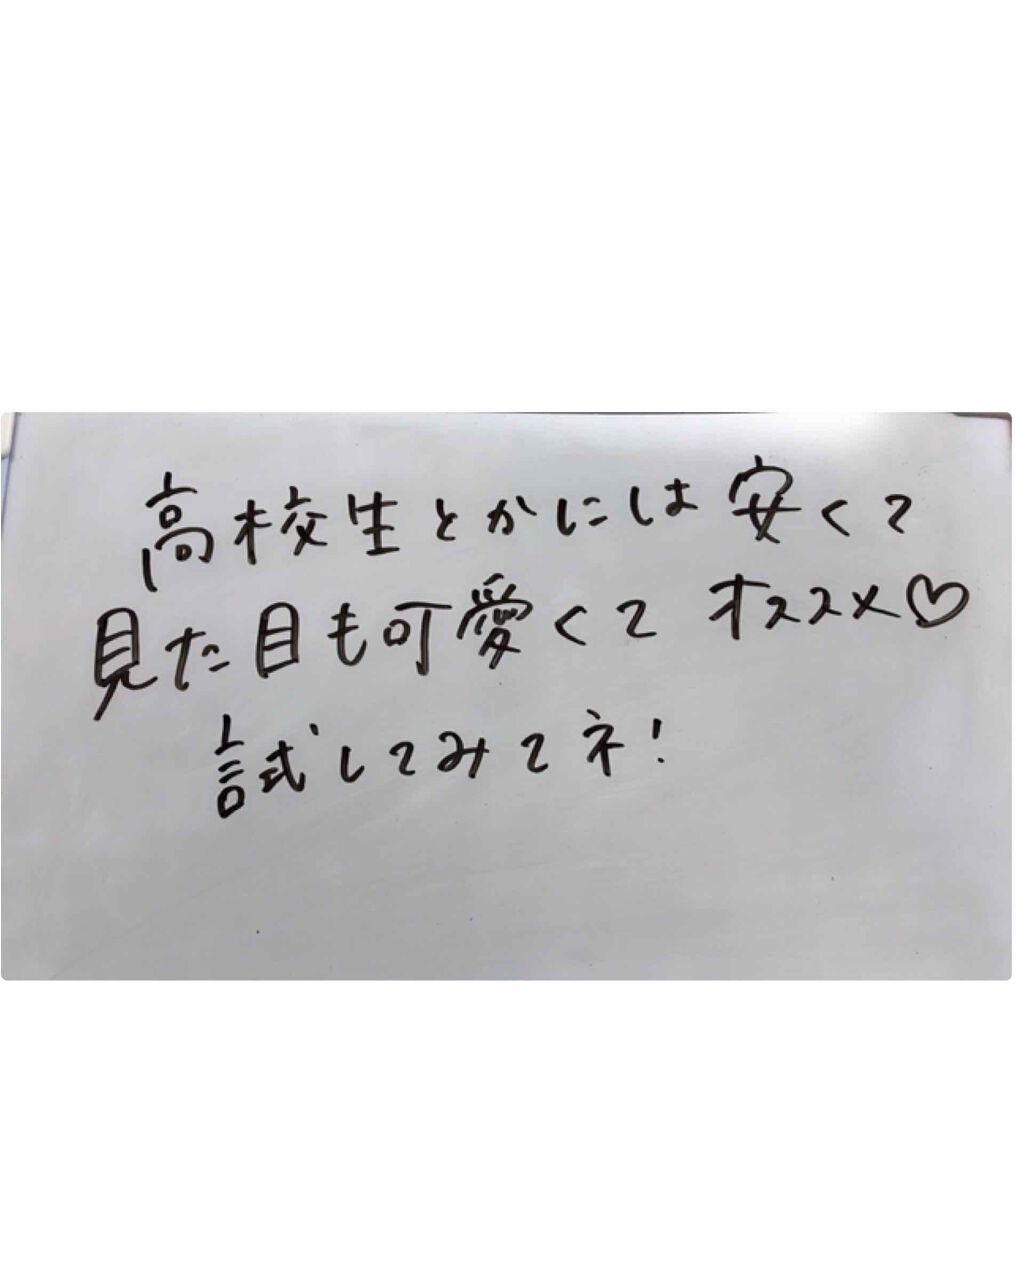 高校生とかには安くて
見た目も可愛くて オススメ♡
試してみてネ!